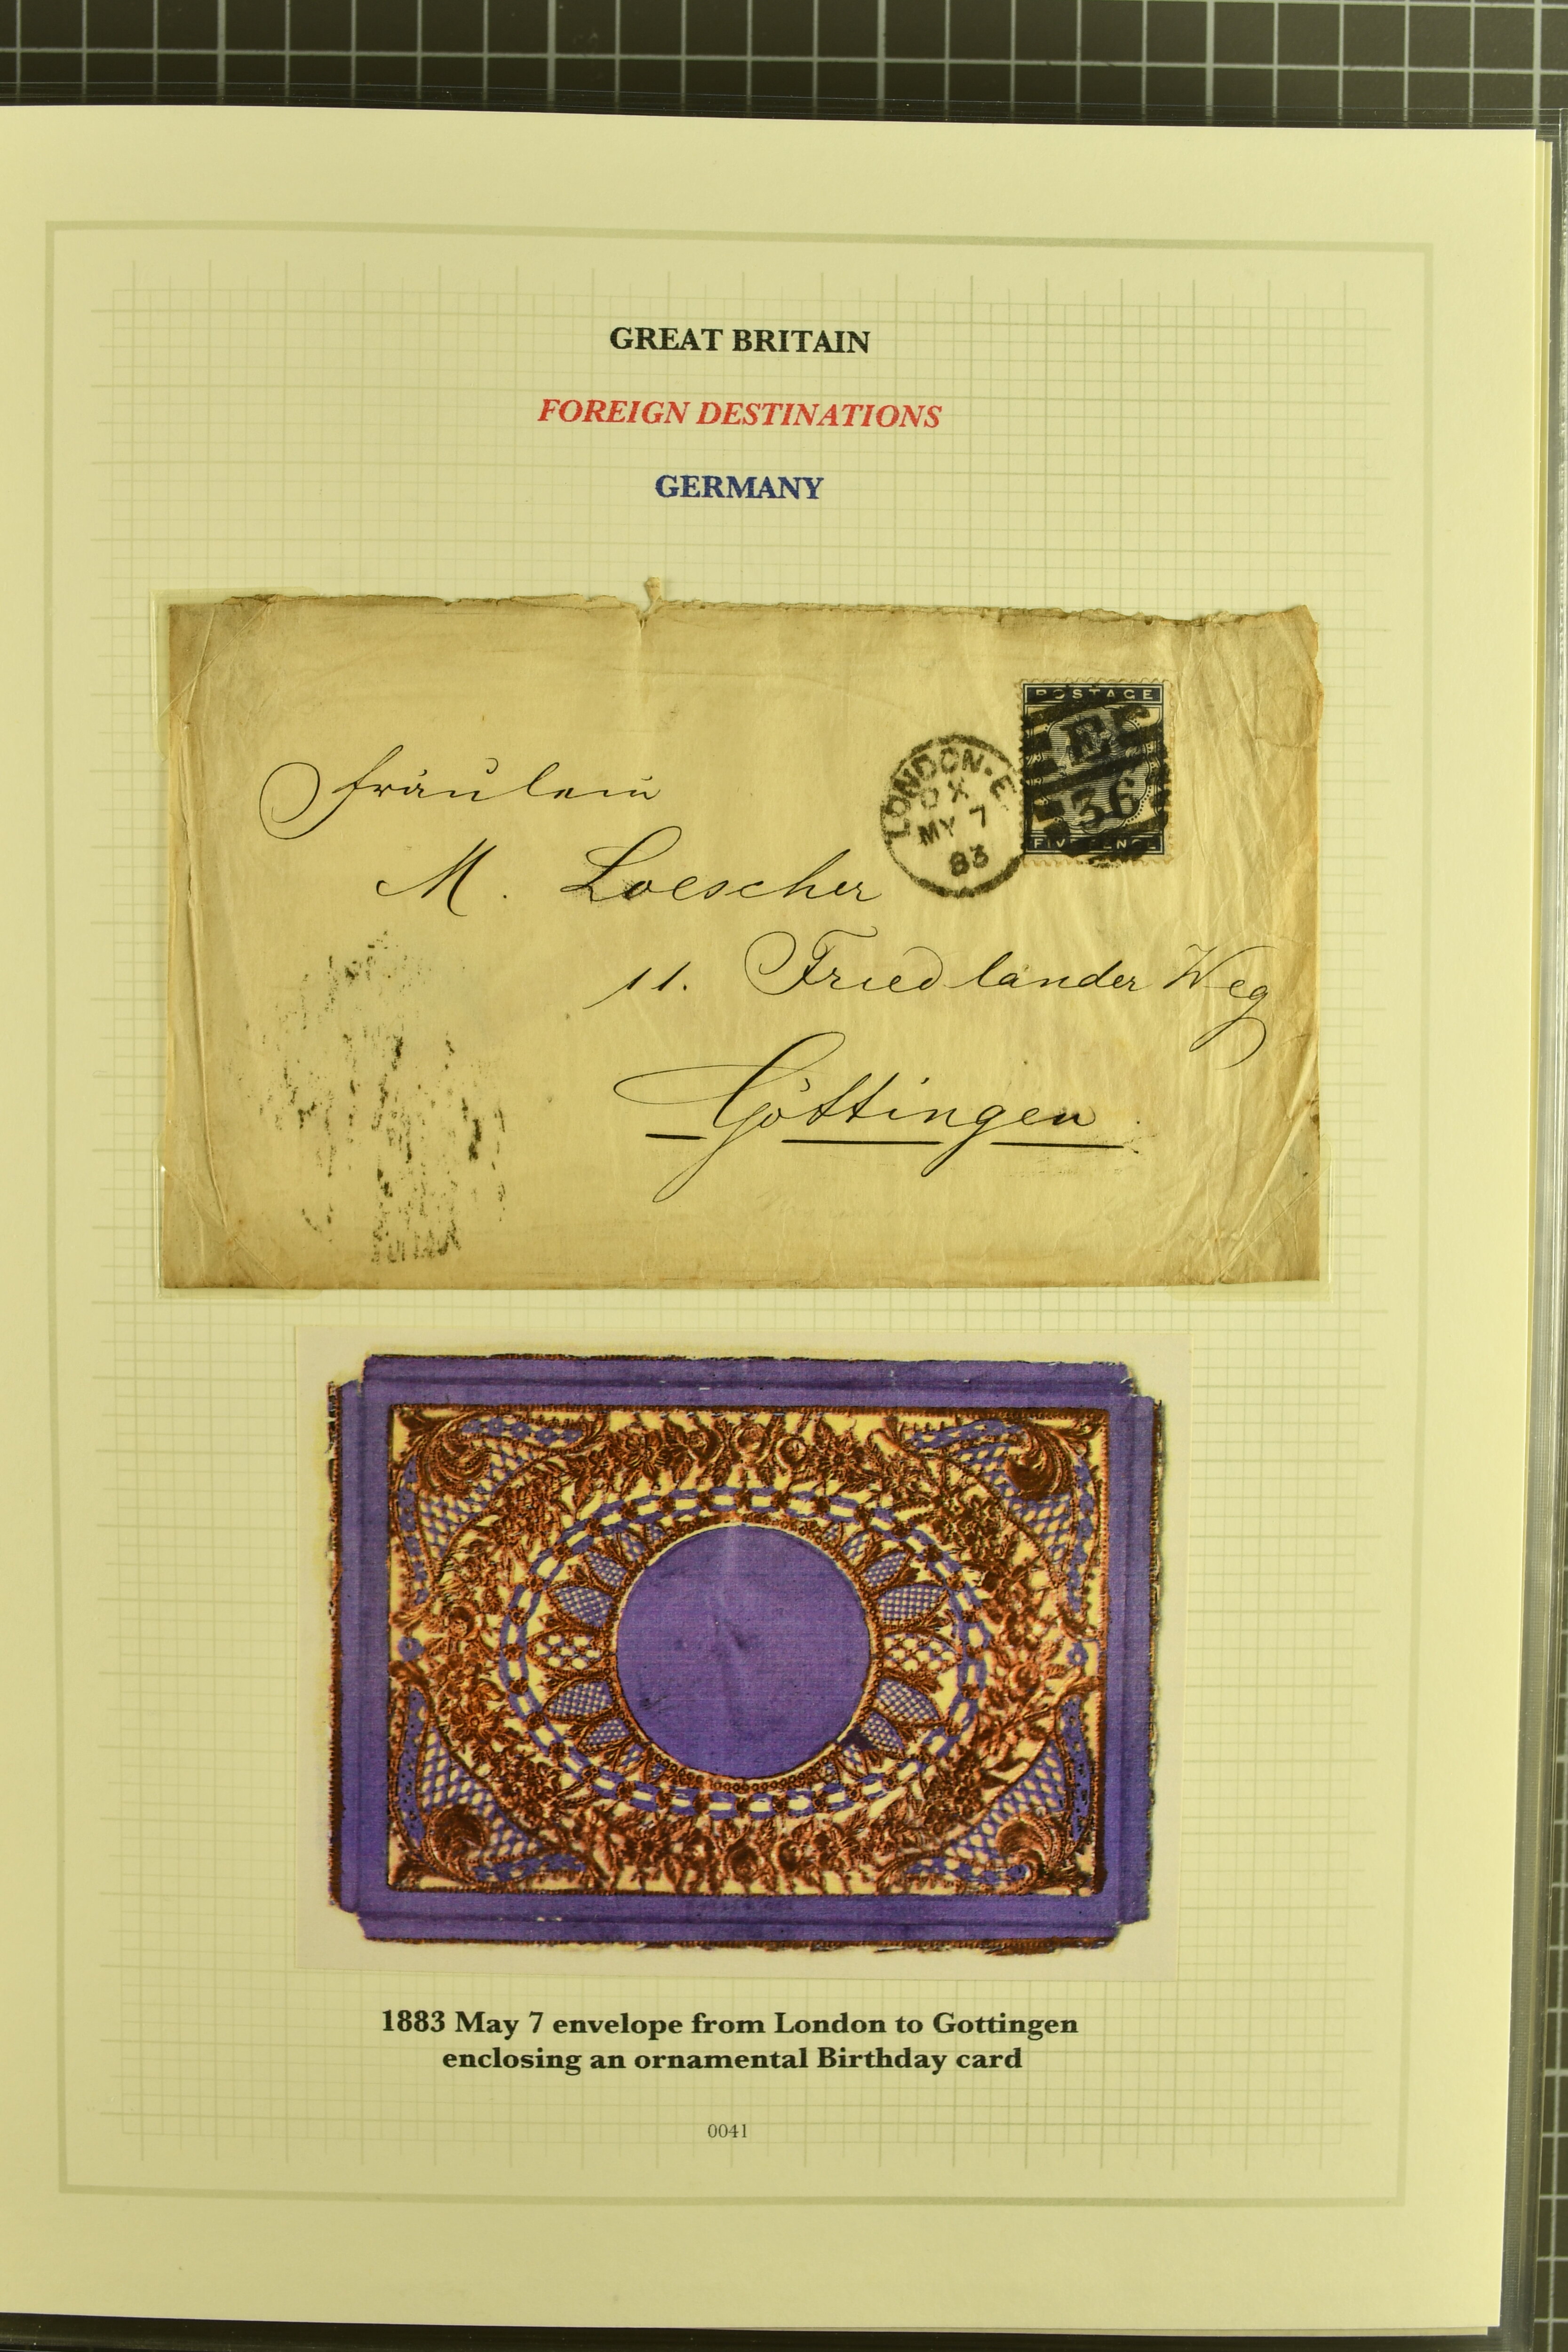 GREAT BRITAIN
FOREIGN DESTINATIONS
GERMANY
POSTAGE
E
36
FIVE PENCE
LONDON·E
OX
MY 7
83
Fräulein
M. Loescher
11. Friedländer Weg
Göttingen
1883 May 7 envelope from London to Gottingen
enclosing an ornamental Birthday card
0041